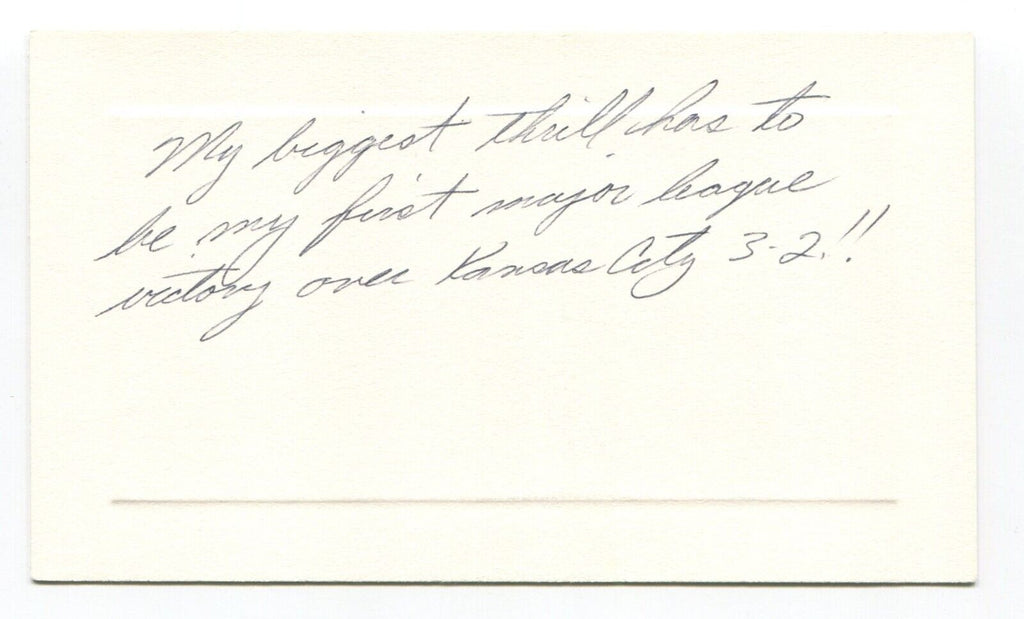 My biggest thrill has to
be my first major league
victory over Kansas City 3-2!!